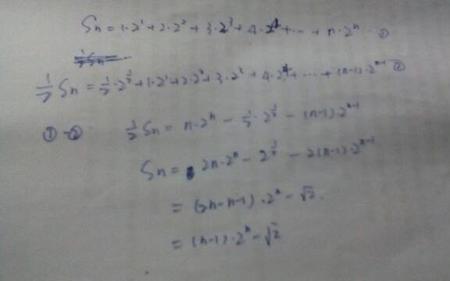 Sn = 1·2¹ + 2·2² + 3·2³ + 4·2⁴ + ··· + n·2ⁿ ①
½Sn = ½·2^½ + 1·2¹ + 2·2² + 3·2³ + 4·2⁴ + ··· + (n-1)·2ⁿ⁻¹ ②
①-② ½Sn = n·2ⁿ - ½·2^½ - (n-1)·2ⁿ⁻¹
Sn = 2n·2ⁿ - 2^½ - 2(n-1)·2ⁿ⁻¹
= (2n-n-1)·2ⁿ - √2
= (n-1)·2ⁿ - √2